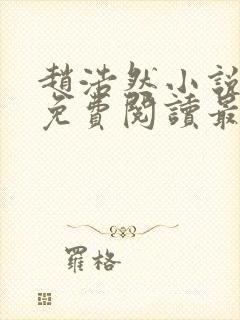 趙浩然小說
免費閱讀最
羅格